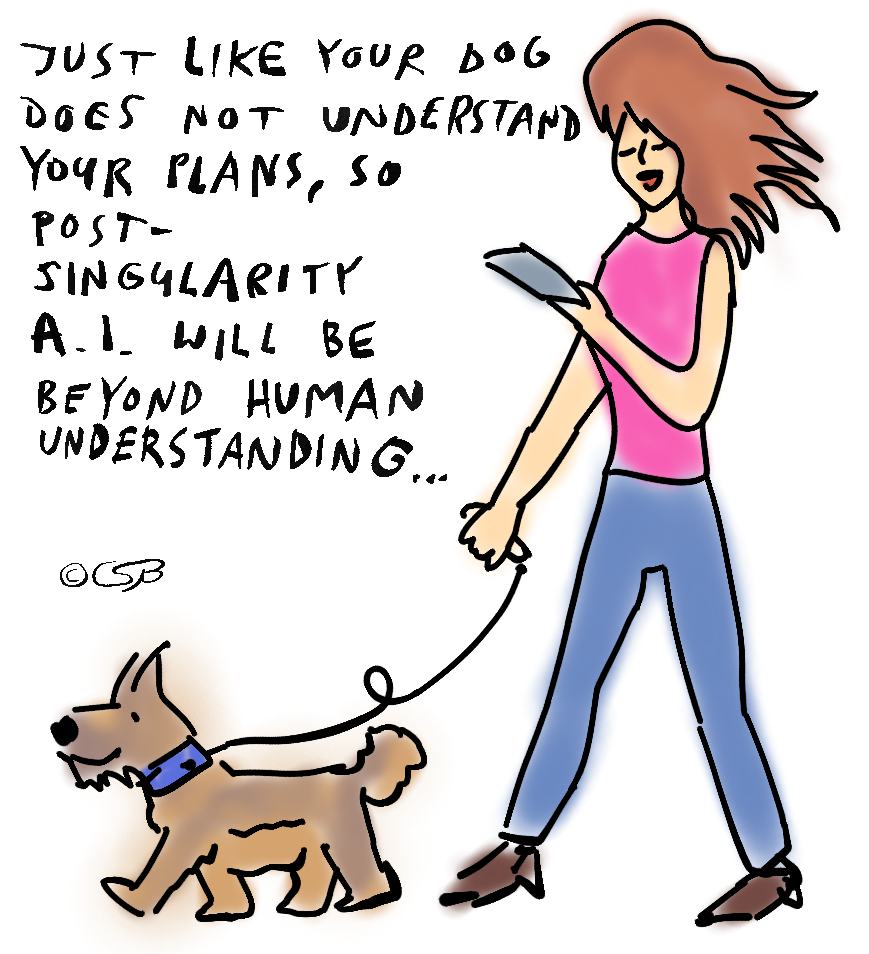 JUST LIKE YOUR DOG
DOES NOT UNDERSTAND
YOUR PLANS, SO
POST-
SINGULARITY
A.I. WILL BE
BEYOND HUMAN
UNDERSTANDING...
©CSB